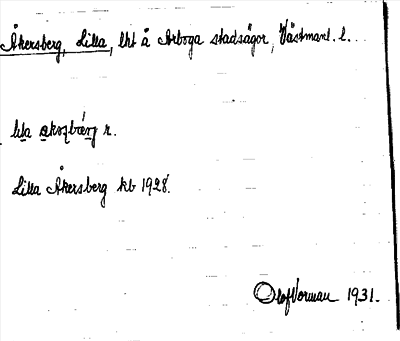 Åkersberg, Lilla, lht å Arboga stadsägor, Västmanl. l.
lı̢la åkɒʂbærj r.
Lilla Åkersberg kb 1928.
Olof Vorman 1931.